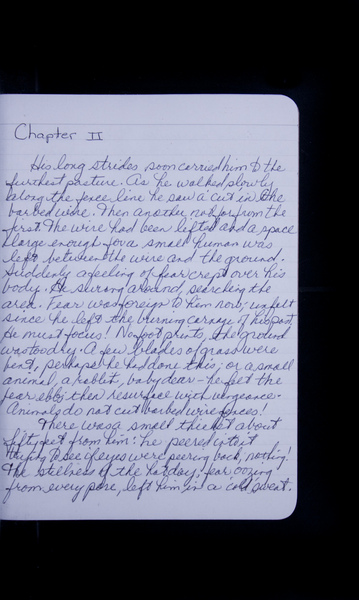 Chapter II
His long strides soon carried him to the
furthest pasture. As he walked slowly
along the fence line he saw a cut in the
barbed wire. Then another not far from the
first. The wire had been lifted and a space
large enough for a small human was
left between the wire and the ground.
Suddenly a feeling of fear crept over his
body. He swung around, searching the
area. Fear was foreign to him now; unfelt
since he left the burning carnage of his past.
He must focus! No foot prints, the ground
was too dry. A few blades of grass were
bent, perhaps he had done this; or a small
animal, a rabbit, baby dear - he felt the
fear ebb; then resurface with vengeance.
Animals do not cut barbed wire fences!
There was a small thicket about
fifty feet from him: he peered into it
trying to see if eyes were peering back, nothing!
The stillness of the hot day; fear oozing
from every pore, left him in a cold sweat.